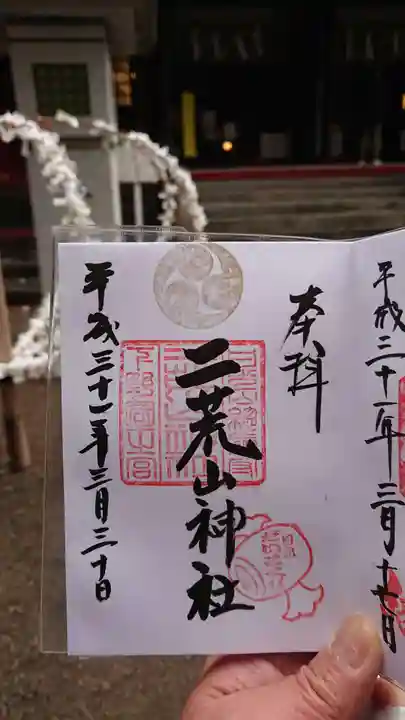 平成三十一年三月十七日
奉拝
二荒山神社
平成三十一年三月三十日